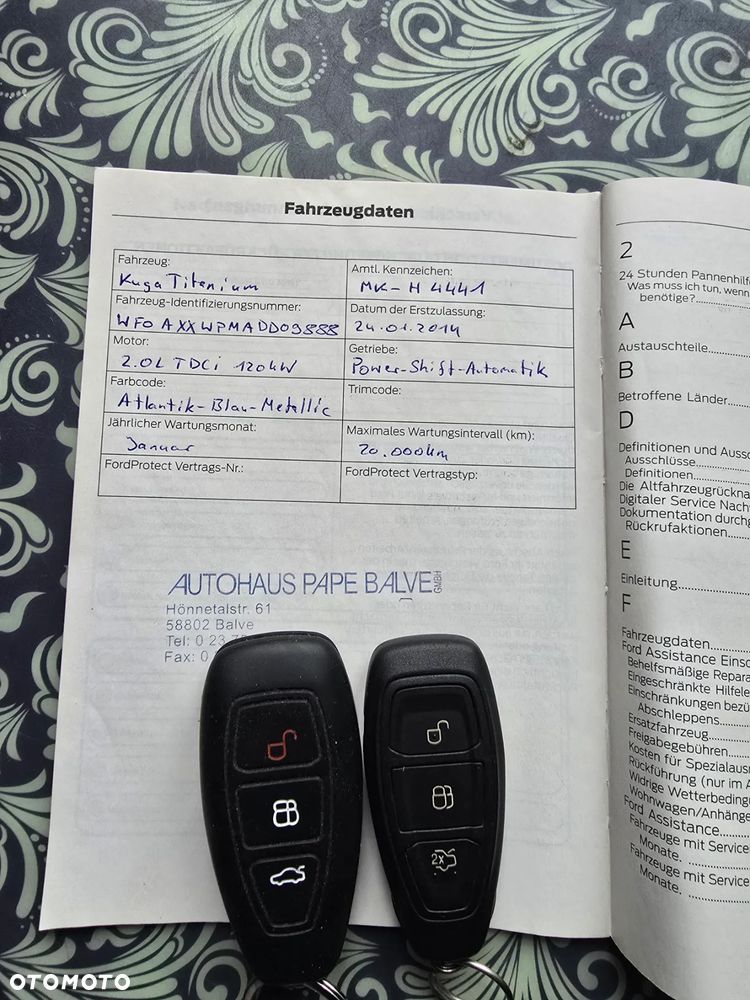 Fahrzeugdaten
Fahrzeug:
Kuga Titanium
Amtl. Kennzeichen:
MK-H 4441
Fahrzeug-Identifizierungsnummer:
WF0AXXWPMADD09888
Datum der Erstzulassung:
24.01.2014
Motor:
2.0L TDCi 120kW
Getriebe:
Power-Shift-Automatik
Farbcode:
Atlantik-Blau-Metallic
Trimcode:
Jährlicher Wartungsmonat:
Januar
Maximales Wartungsintervall (km):
20.000km
FordProtect Vertrags-Nr.:
FordProtect Vertragstyp:
AUTOHAUS PAPE BALVE GMBH
Hönnetalstr. 61
58802 Balve
Tel: 0 23
Fax: 0
2x
2
24 Stunden Pannenhilfe
Was muss ich tun, wenn
benötige?
A
Austauschteile
B
Betroffene Länder
D
Definitionen und
Ausschlüsse
Definitionen
Die
Digitaler Service
Dokumentation
Rückrufaktionen
E
Einleitung
F
Fahrzeugdaten
Ford Assistance
Behelfsmäßige
Eingeschränkte
Einschränkungen
Abschleppens
Ersatzfahrzeug
Freigabegebühren
Kosten für
Rückführung (nur im
Widrige
Wohnwagen/Anhänge
Ford Assistance
Fahrzeuge mit Service
Monate.
Fahrzeuge mit Service
Monate.
OTOMOTO